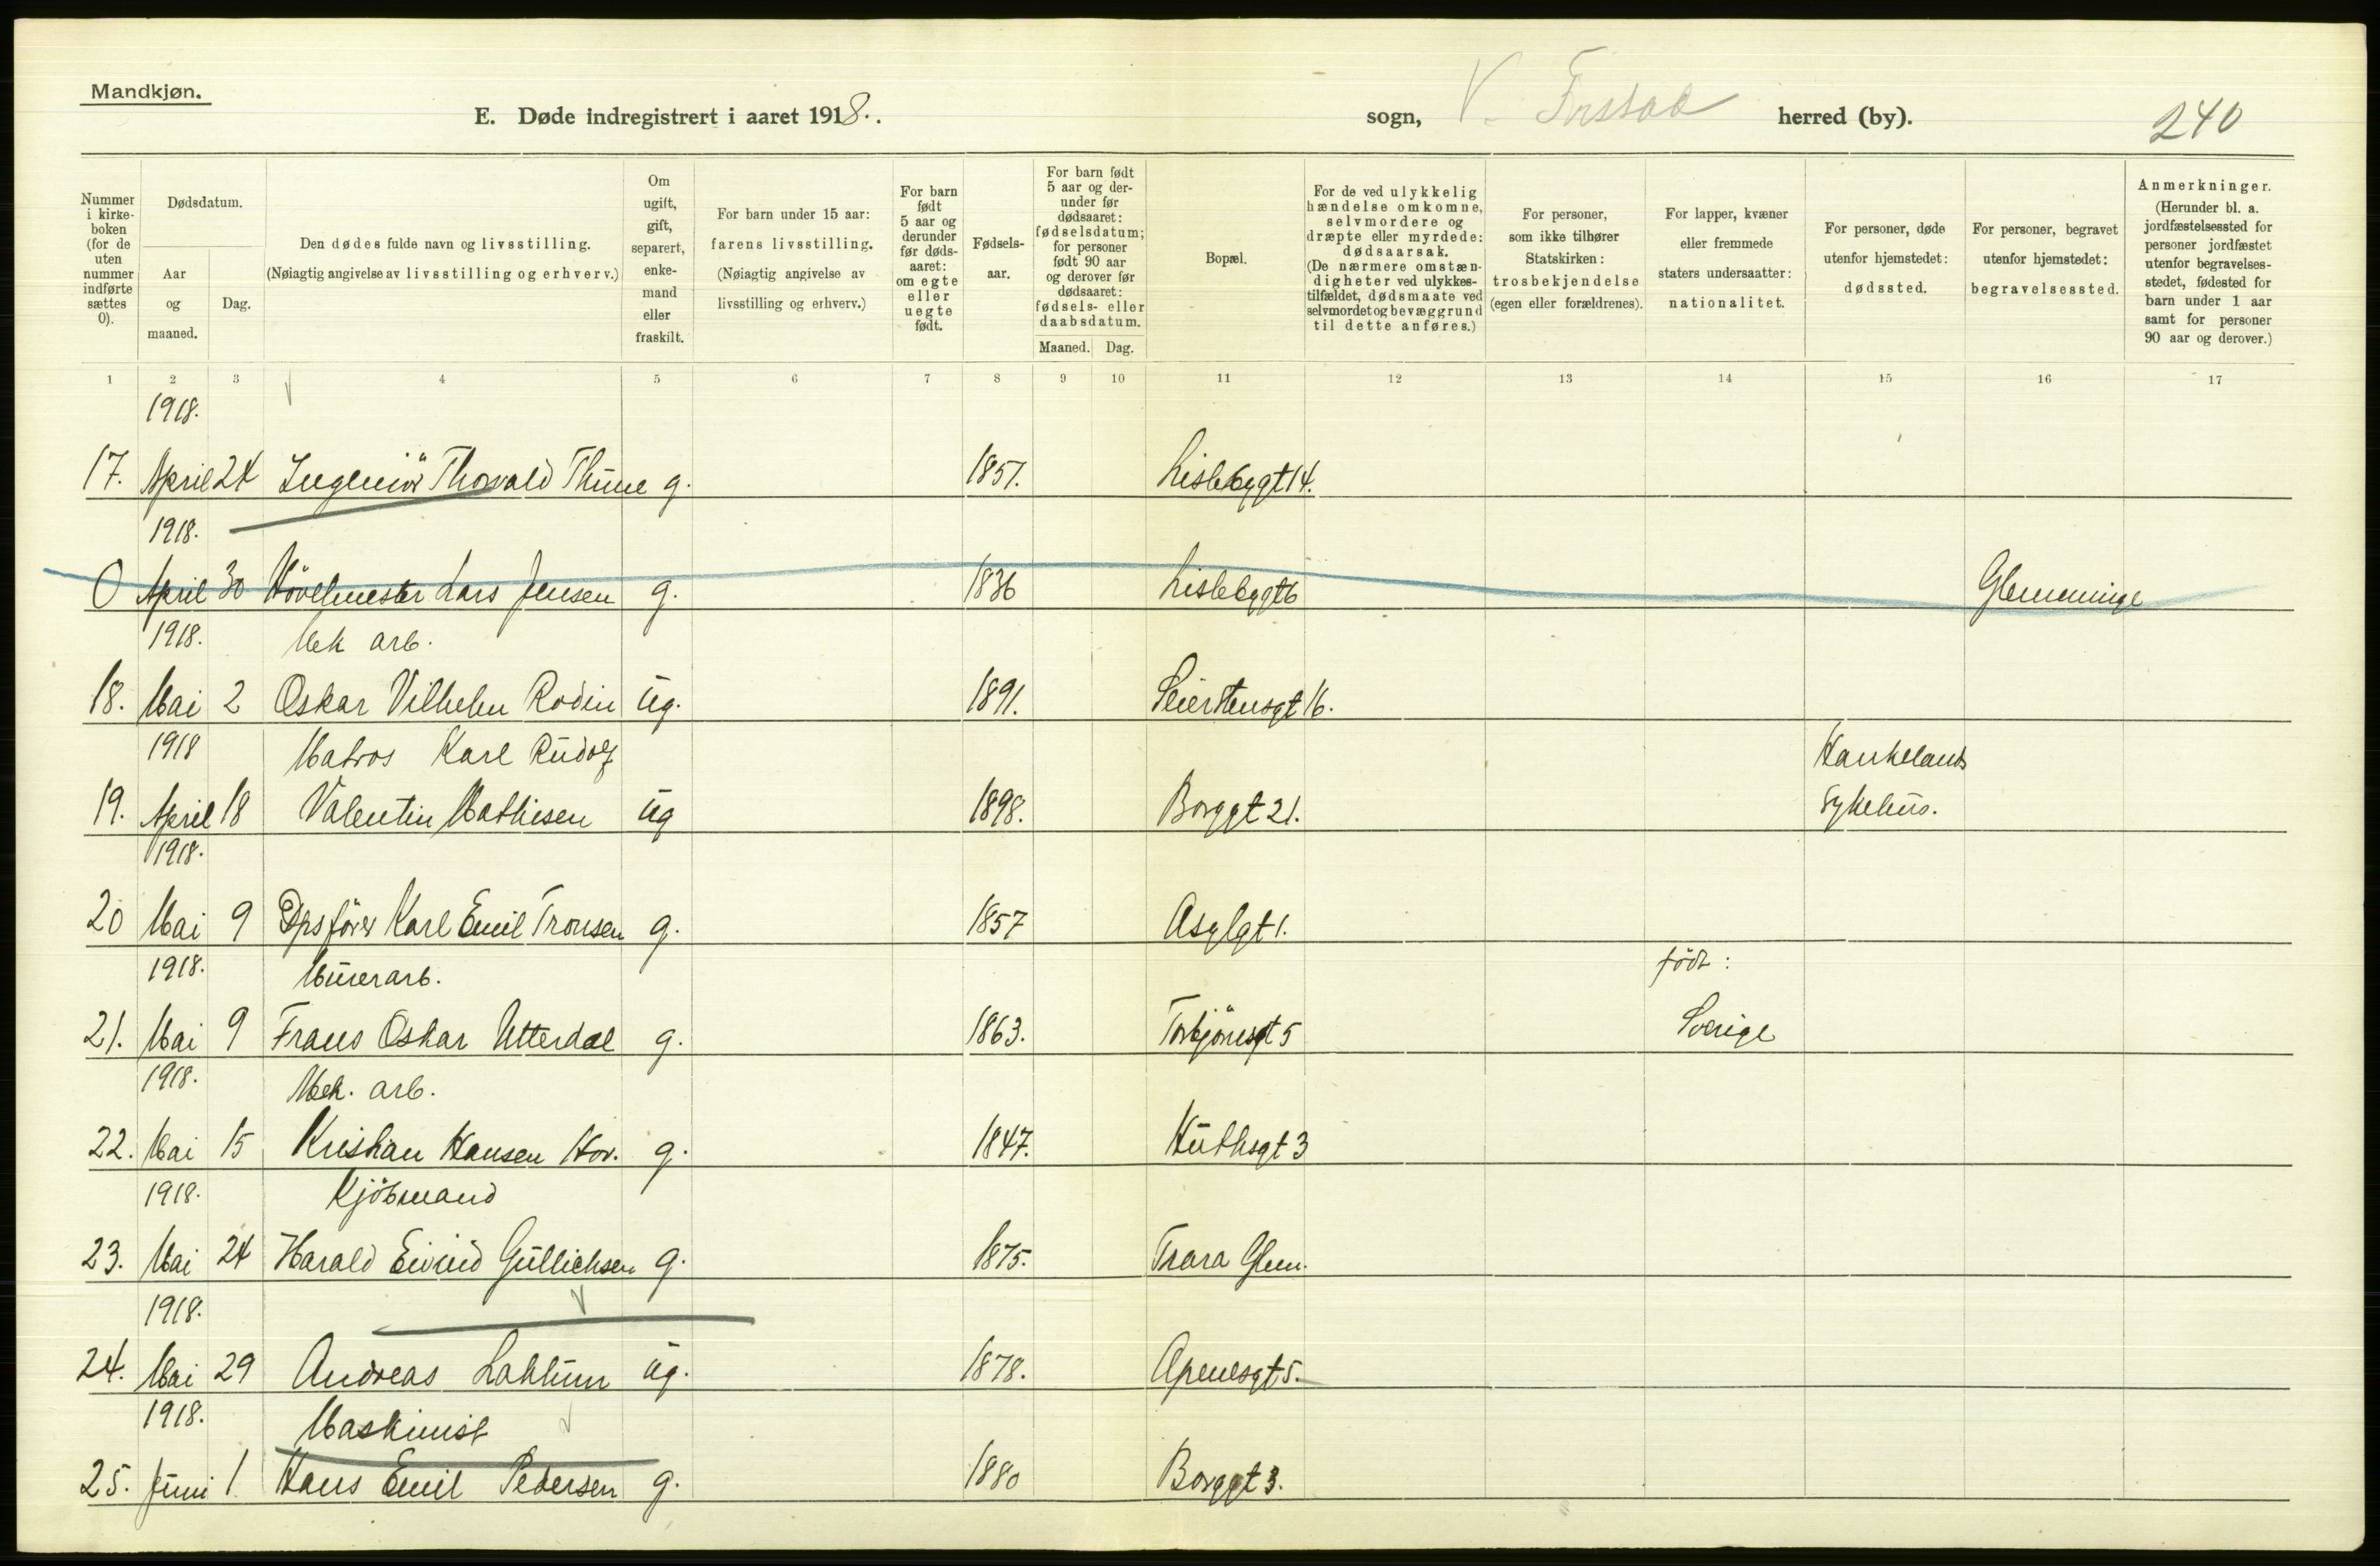 Mandkjøn.
E. Døde indregistrert i aaret 1918. sogn, V. Fr.stad herred (by). 240
Nummer i kirkeboken (for de uten nummer indførte sættes 0).
Dødsdatum.
Aar og maaned.
Dag.
Den dødes fulde navn og livsstilling.
(Nøiagtig angivelse av livsstilling og erhverv.)
Om ugift, gift, separert, enkemand eller fraskilt.
For barn under 15 aar:
farens livsstilling.
(Nøiagtig angivelse av
livsstilling og erhverv.)
For barn født 5 aar og derunder før dødsaaret: om egte eller uegte født.
Fødselsaar.
For barn født 5 aar og derunder før dødsaaret: fødselsdatum; for personer født 90 aar og derover før dødsaaret: fødsels- eller daabsdatum.
Maaned. Dag.
Bopæl.
For de ved ulykkelig hændelse omkomne, selvmordere og dræpte eller myrdede: dødsaarsak.
(De nærmere omstændigheter ved ulykkestilfældet, dødsmaate ved selvmordet og bevæggrund til dette anføres.)
For personer,
som ikke tilhører
Statskirken:
trosbekjendelse
(egen eller forældrenes).
For lapper, kvæner
eller fremmede
staters undersaatter:
nationalitet.
For personer, døde
utenfor hjemstedet:
dødssted.
For personer, begravet
utenfor hjemstedet:
begravelsessted.
Anmerkninger.
(Herunder bl. a. jordfæstelsessted for personer jordfæstet utenfor begravelsesstedet, fødested for barn under 1 aar samt for personer 90 aar og derover.)
1 2 3 4 5 6 7 8 9 10 11 12 13 14 15 16 17
1918.
17. April 24 Ingeniör Thorvald Thüne g. 1851. Lislebygt 14.
1918.
0 April 30 Hövelmester Lars Jensen g. 1836 Lislebygt 6 Glemminge
1918. Mek arb.
18. Mai 2 Oskar Vilhelm Rodin üg. 1891. Seierstensgt 16.
1918 Matros Karl Rüdolf Haukelands
19. April 18 Valentin Mathisen üg 1898. Borggt 21. Sykehüs.
1918.
20 Mai 9 Dpsförer Karl Emil Tronsen g. 1857 Asylgt 1.
1918. Mürerarb. födt:
21. Mai 9 Frans Oskar Utterdal g. 1863. Torbjörnsgt 5 Sverige
1918. Mek. arb.
22. Mai 15 Kristian Hansen Hov. g. 1847. Hüthsgt 3
1918. Kjöbmand
23. Mai 24 Harald Eivind Güllichsen g. 1875. Trara Glem.
1918.
24. Mai 29 Andreas Lahlüm üg. 1878. Apenesgt 5.
1918. Maskinist
25. Jüni 1 Hans Emil Pedersen g. 1880 Borggt 3.